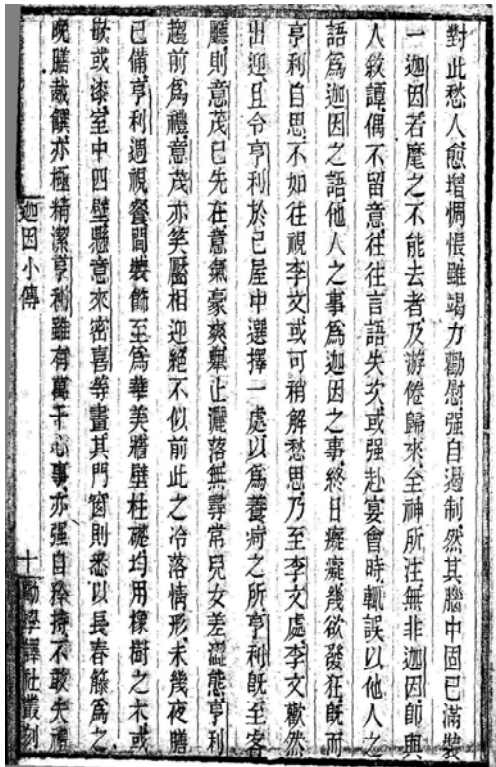 對此愁人愈增惆悵雖竭力勸慰强自遏制然其腦中固已滿裝
一迦因若麾之不能去者及游倦歸來全神所注無非迦因卽與
人敘譚偶不留意往往言語失次或强赴宴會時輒誤以他人之
語爲迦因之語他人之事爲迦因之事終日癡癡幾欲發狂旣而
亨利自思不如往視李文或可稍解愁思乃至李文處李文歡然
出迎且令亨利於己屋中選擇一處以爲養疴之所亨利旣至客
廳則意茂已先在意氣豪爽舉止灑落無尋常兒女羞澀態亨利
趨前爲禮意茂亦笑靨相迎絕不似前此之冷落情形未幾夜膳
已備亨利遇視餐間裝飾至爲華美牆壁柱礎均用橡樹之木或
嵌或漆室中四壁懸意來密喜等畫其門窗則悉以長春籐爲之
晚膳裁饌亦極精潔亨利雖有萬千心事亦强自矜持不敢失禮
迦因小傳
十
勵學譯社叢刻